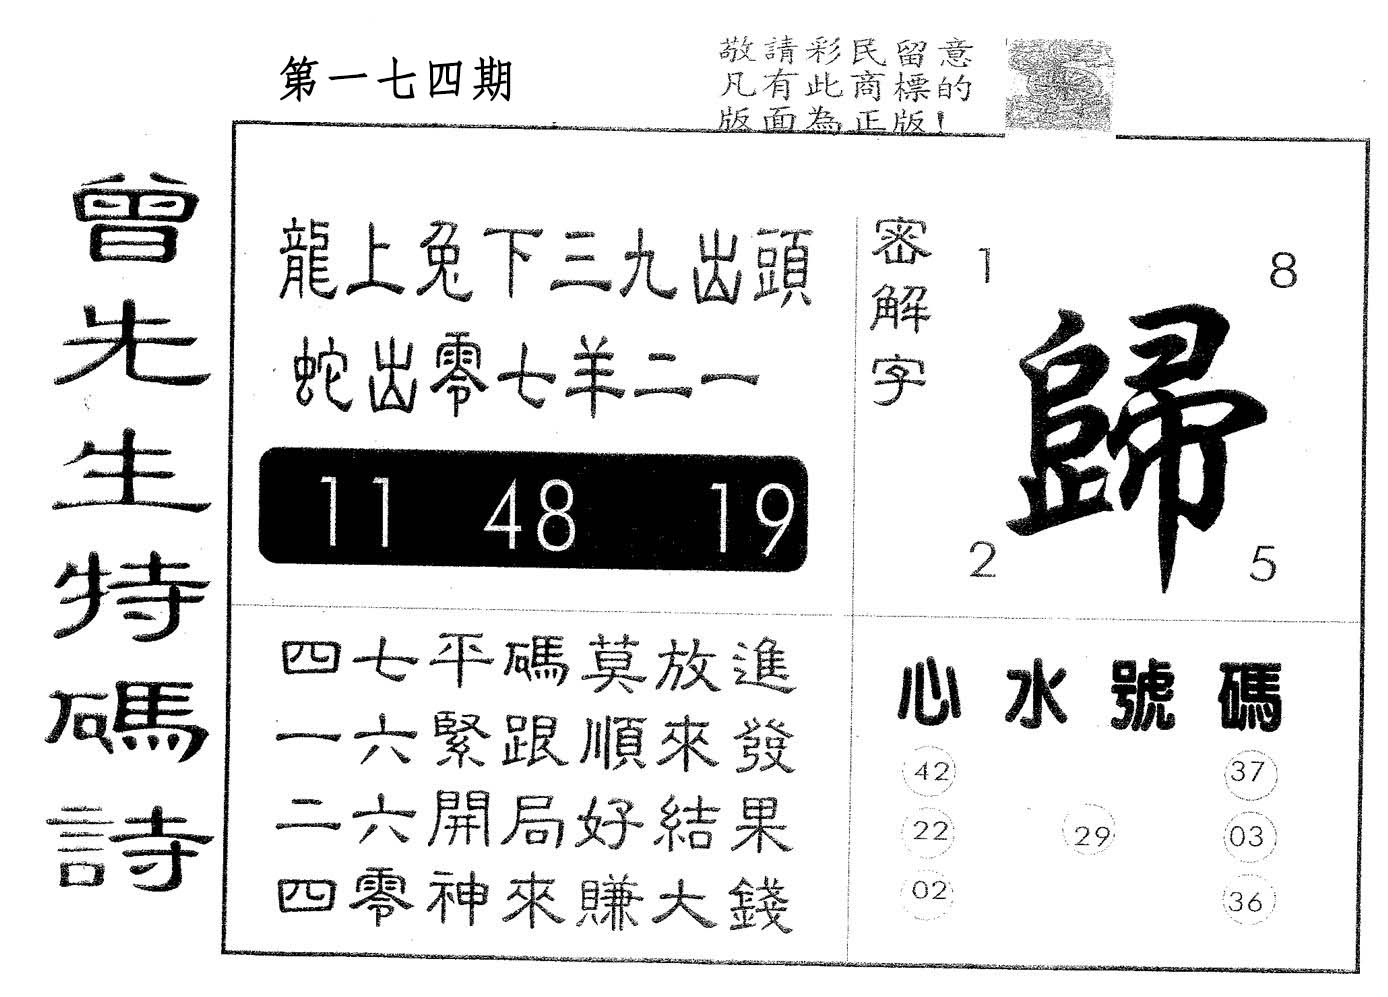 第一七四期
敬請彩民留意
凡有此商標的
版面為正版!
曾先生特碼詩
龍上兔下三九出頭
蛇出零七羊二一
11 48 19
密解字
1 8
歸
2 5
四七平碼莫放進
一六緊跟順來發
二六開局好結果
四零神來賺大錢
心水號碼
42 37
22 29 03
02 36